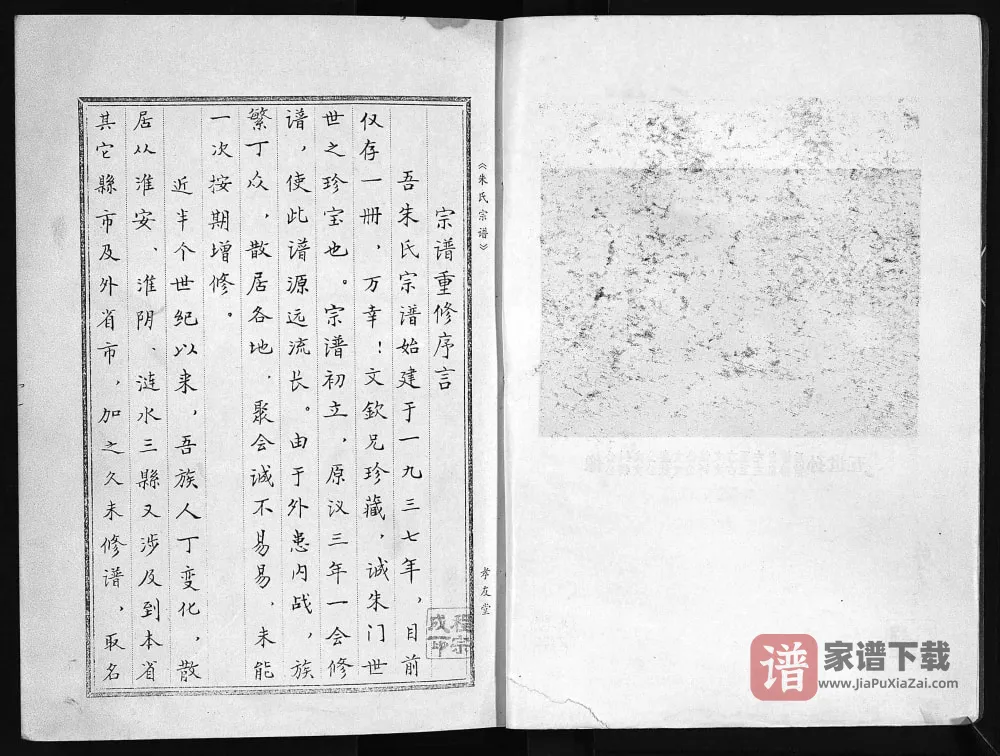 《朱氏宗谱》
孝友堂
宗谱重修序言
吾朱氏宗谱始建于一九三七年，目前
仅存一册，万幸！文钦兄珍藏，诚朱门世
世之珍宝也。宗谱初立，原议三年一会修
谱，使此谱源远流长。由于外患内战，族
繁丁众，散居各地，聚会诚不易易，未能
一次按期增修。
近半个世纪以来，吾族人丁变化，散
居从淮安、淮阴、涟水三縣又涉及到本省
其它縣市及外省市，加之久未修谱，取名
程宗
成印
谱
家谱下载
www.JiaPuXiaZai.com